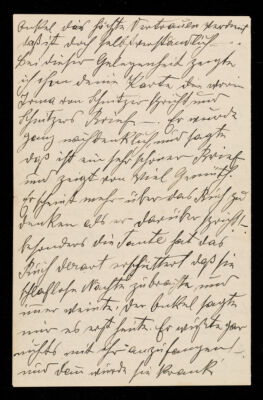 Onkel das höchste Vertrauen verdient
daß ist doch selbstverständlich - . .
Bei dieser Gelegenheit zeigte
ich ihm deine Karte die worin
von Schnitzer spricht und
Schnitzers Brief —. Er wurde
ganz nachdenklich und sagte
daß ist ein sehr schöner Brief
und zeigt von viel Gemüth
Er scheint mehr über das Buch zu
denken als er darüber spricht —
besonders die Tante hat das
Buch derart erschüttert daß sie
schlaflose Nächte zubrachte und
immer weinte. Der Onkel sagte
mir es erst heute. Er wußte gar
nichts mit ihr anzufangen! —
und dann wurde sie krank